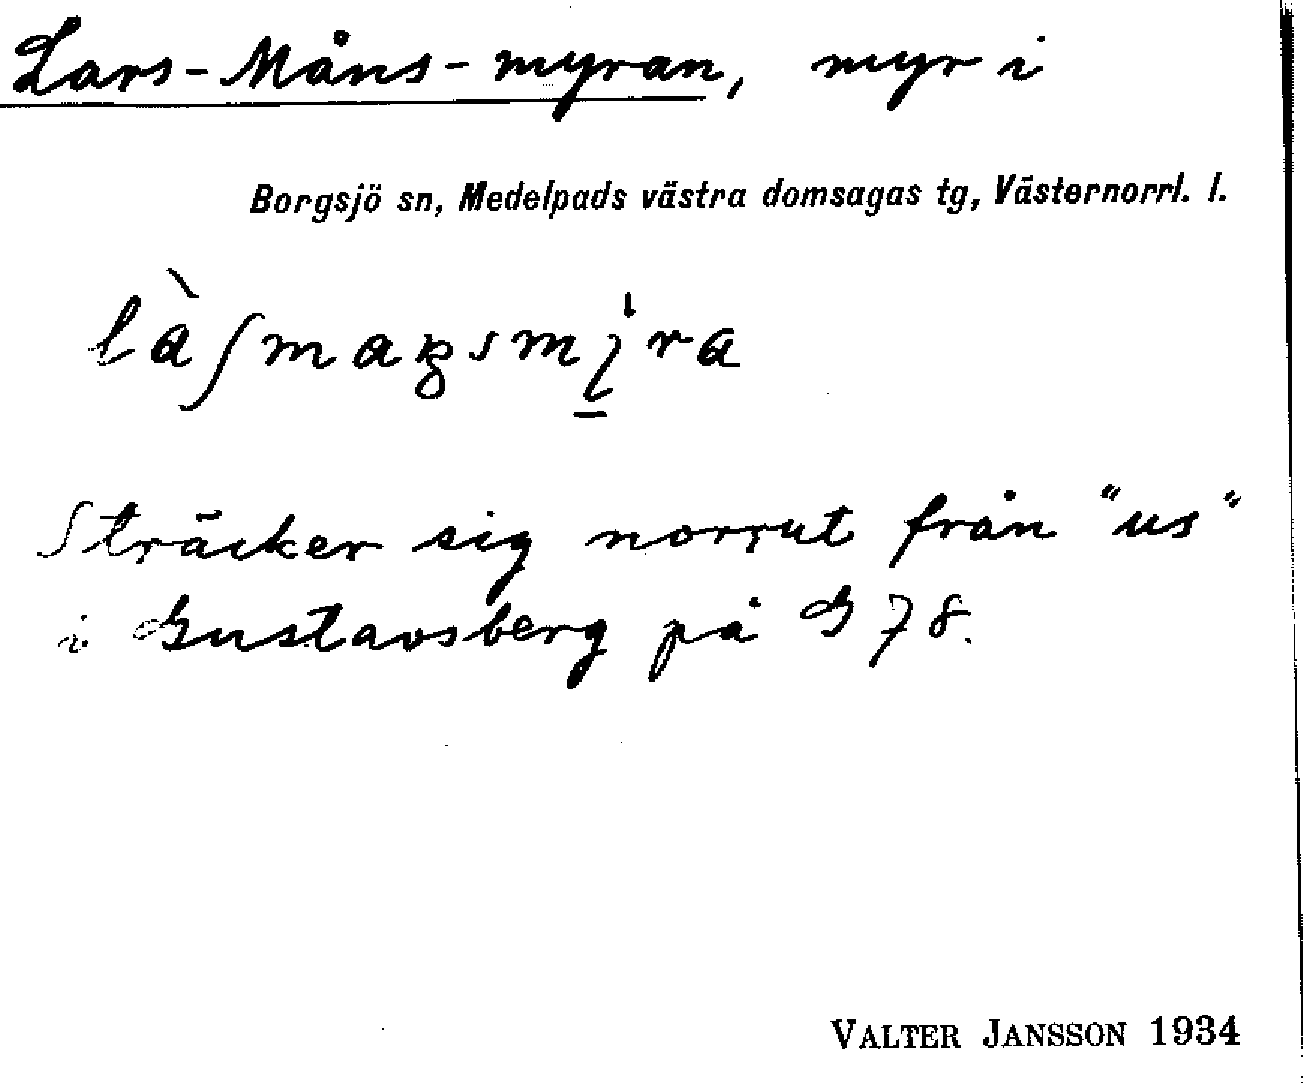 Lars-Måns-myran, myr i
Borgsjö sn, Medelpads västra domsagas tg, Västernorrl. l.
Sträcker sig norrut från "us"
i Gustavsberg på G 78.
VALTER JANSSON 1934